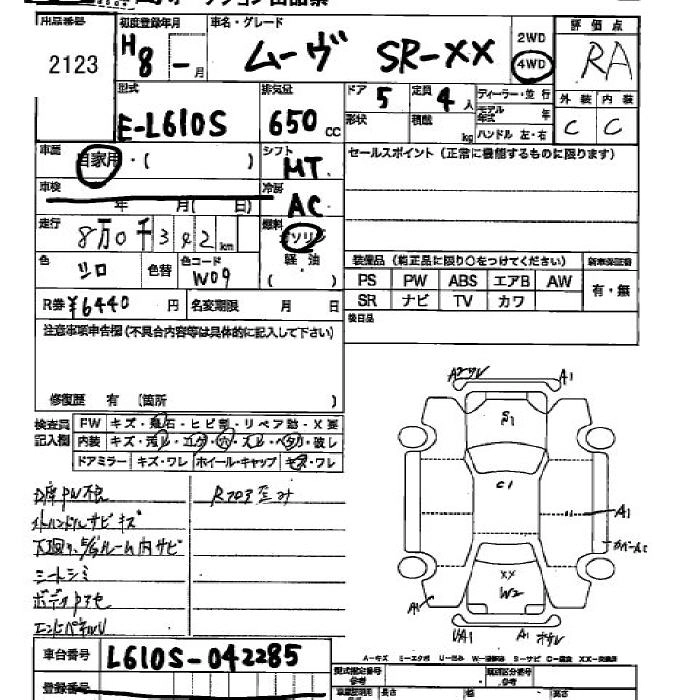 出品番号
2123
初度登録年月
H8 - 月
車名・グレード
ムーヴ SR-XX
2WD
4WD
評価点
RA
型式
E-L610S
排気量
650 cc
ドア 5
定員 4人
形状
積載 kg
ディーラー・並行
モデル年式 年
ハンドル 左・右
外装 内装
C C
車歴
自家用・( )
シフト
MT
セールスポイント(正常に機能するものに限ります)
車検
年 月( 日)
冷房
AC
走行
8万0千342km
燃料
ガソリン
軽・油
( )
色
シロ
色替
色コード
W09
装備品(純正品に限り○をつけてください)
新車保証書
PS PW ABS エアB AW
有・無
SR ナビ TV カワ
R券 ¥6440 円
名変期限 月 日
後日品
注意事項申告欄(不具合内容等は具体的に記入して下さい)
修復歴 有 (箇所 )
検査員記入欄
FW キズ・飛石・ヒビ割・リペア跡・X要
内装 キズ・汚レ・コゲ・穴・スレ・ベタ・破レ
ドアミラー キズ・ワレ ホイール・キャップ キズ・ワレ
A1
S1
C1
A1
XX
W2
A1
A1
D席PW不良
ハンドルサビキズ
ルーム内サビ
シートシミ
車台番号
L610S-042285
登録番号
A-キズ
型式指定番号
類別区分番号
参考
長さ
幅
高さ